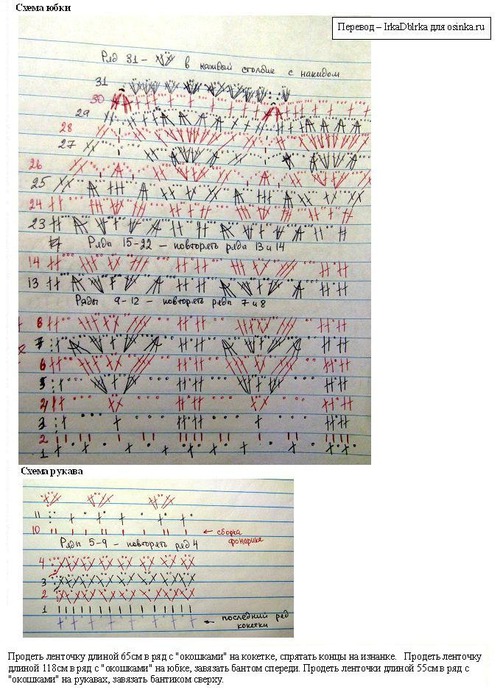 Схема юбки
Перевод – IrkaDblrka для osinka.ru
Ряд 31 – в каждый столбик с накидом
31
30
29
28
27
26
25
24
23
Ряды 15-22 – повторять ряда 13 и 14
14
13
Ряды 9-12 – повторять ряда 7 и 8
8
7
6
5
4
3
2
1
Схема рукава
11
10 сборка фонарика
Ряды 5-9 – повторять ряд 4
4
3
2
1
последний ряд кокетки
Продеть ленточку длиной 65см в ряд с "окошками" на кокетке, спрятать концы на изнанке. Продеть ленточку
длиной 118см в ряд с "окошками" на юбке, завязать бантом спереди. Продеть ленточки длиной 55см в ряд с
"окошками" на рукавах, завязать бантиком сверху.